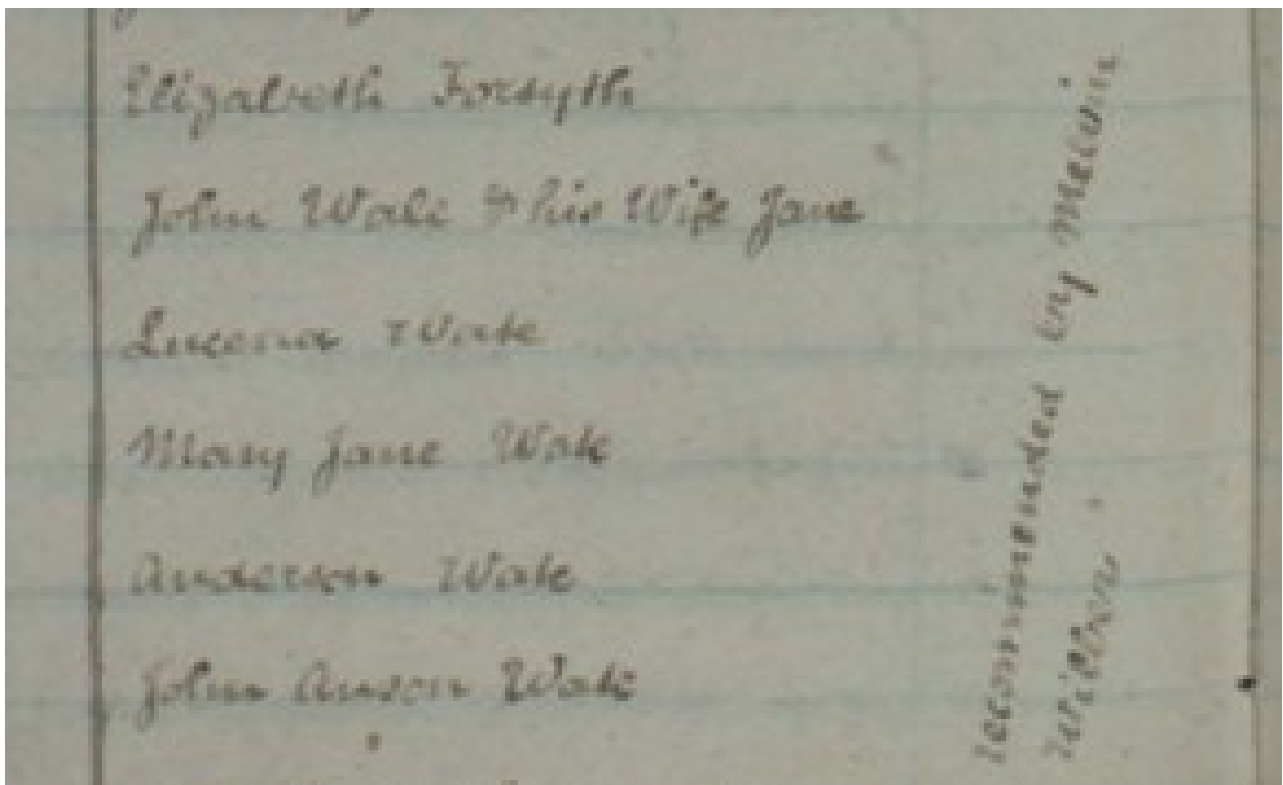 Elizabeth Forsyth
John Wale & his Wife Jane
Lucena Wale
Mary Jane Wale
Anderson Wale
John Anson Wale
reccommended by Melvin
Wilbur